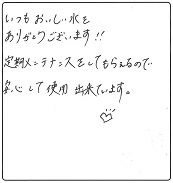 いつもおいしい水を
ありがとうございます!!
定期メンテナンスをしてもらえるので
安心して使用出来ています。